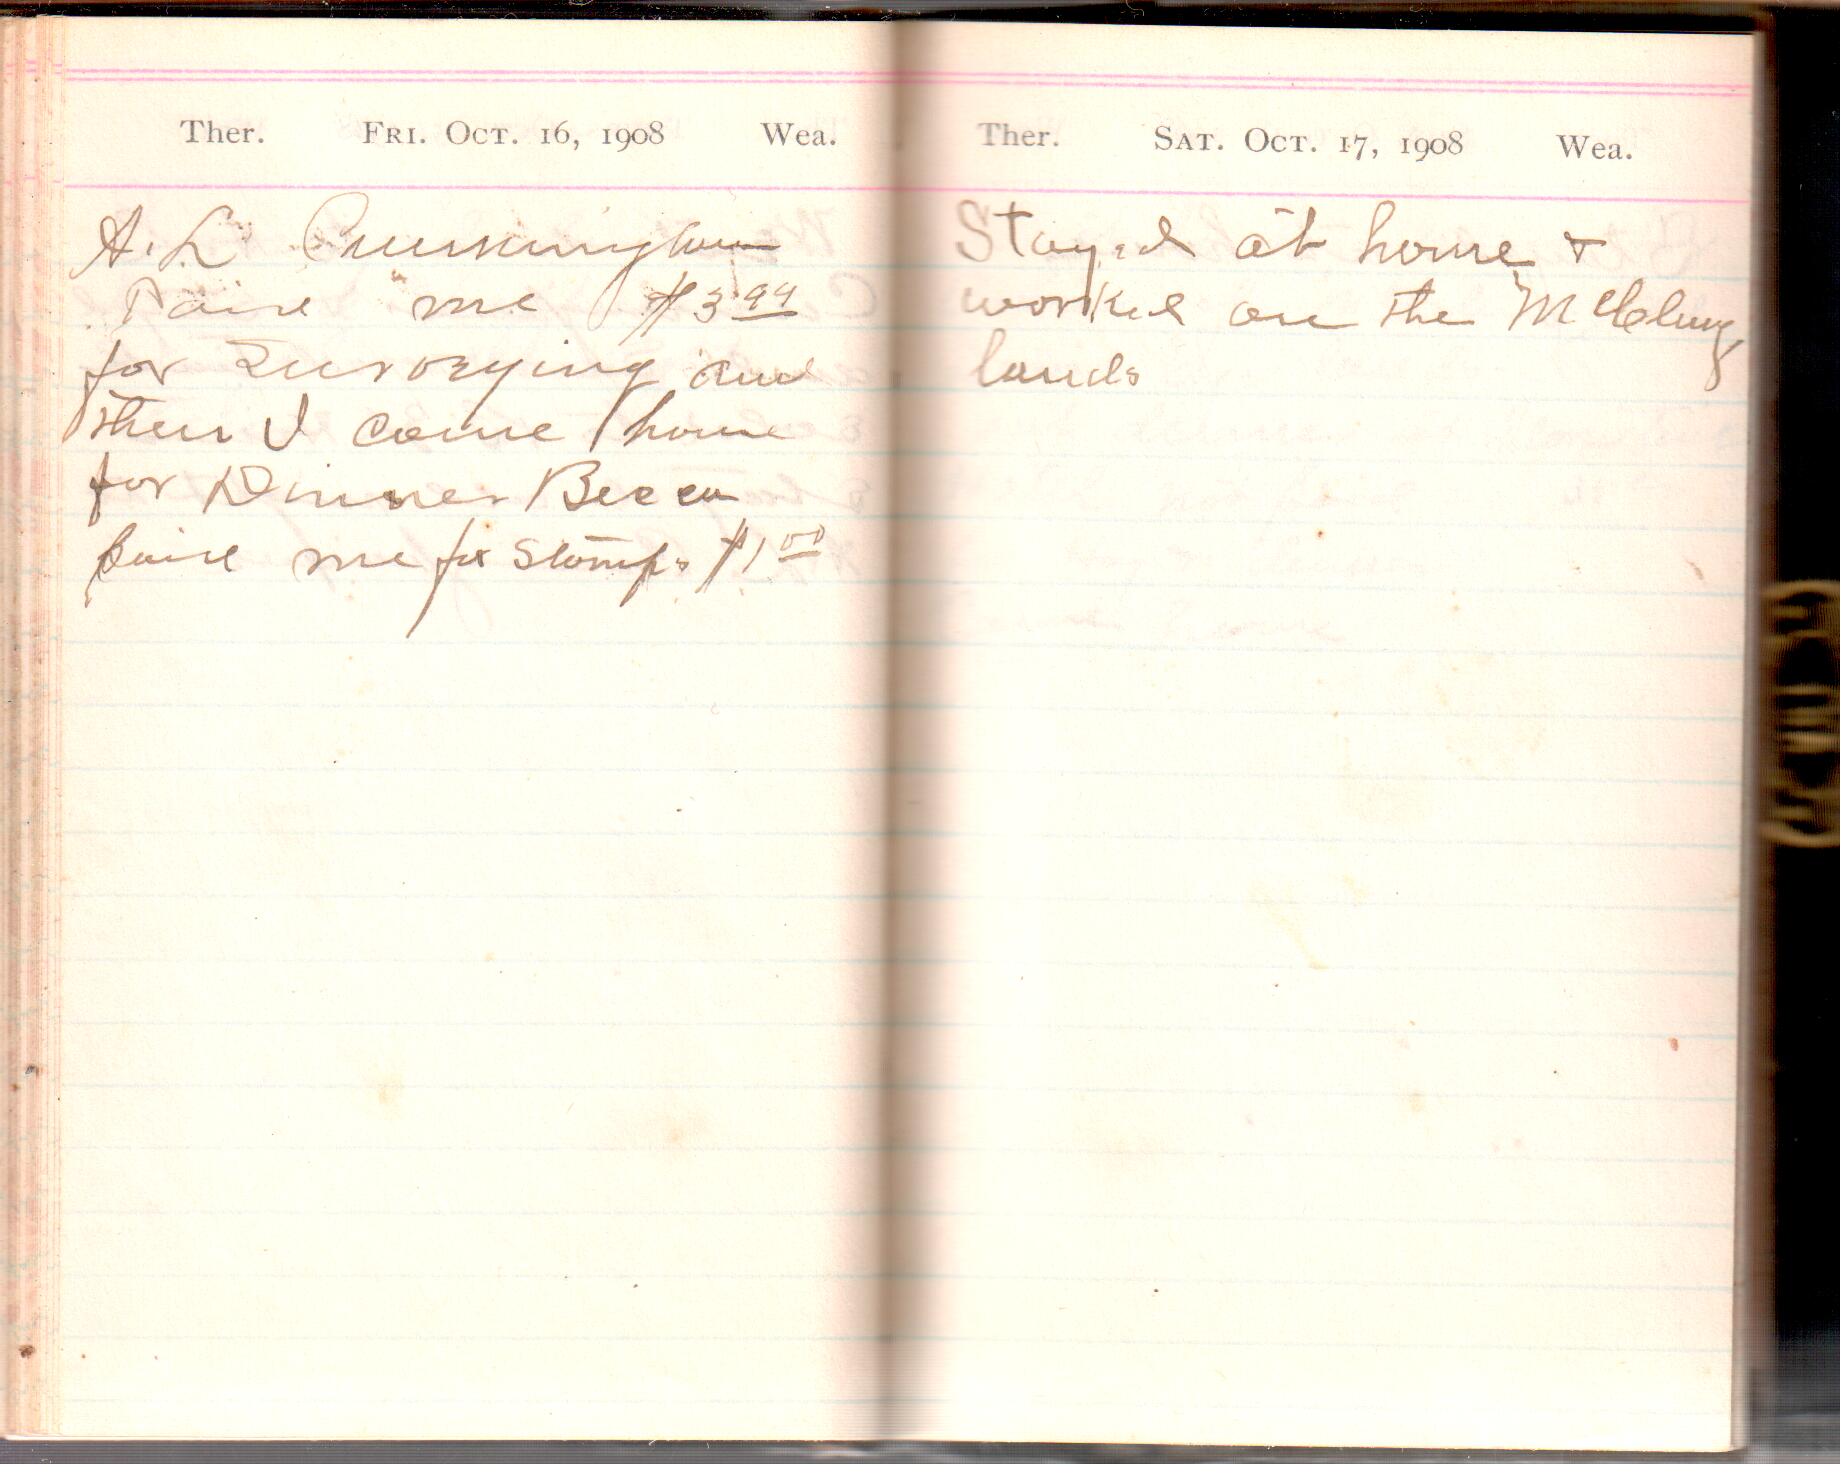 Ther. Fri. Oct. 16, 1908 Wea.
A. L Cunningham
Paid me $3.99
for Surveying and
then I come home
for Dinner
paid me for Stamps $1.00
Ther. Sat. Oct. 17, 1908 Wea.
Stayed at home &
worked on the McClung
lands